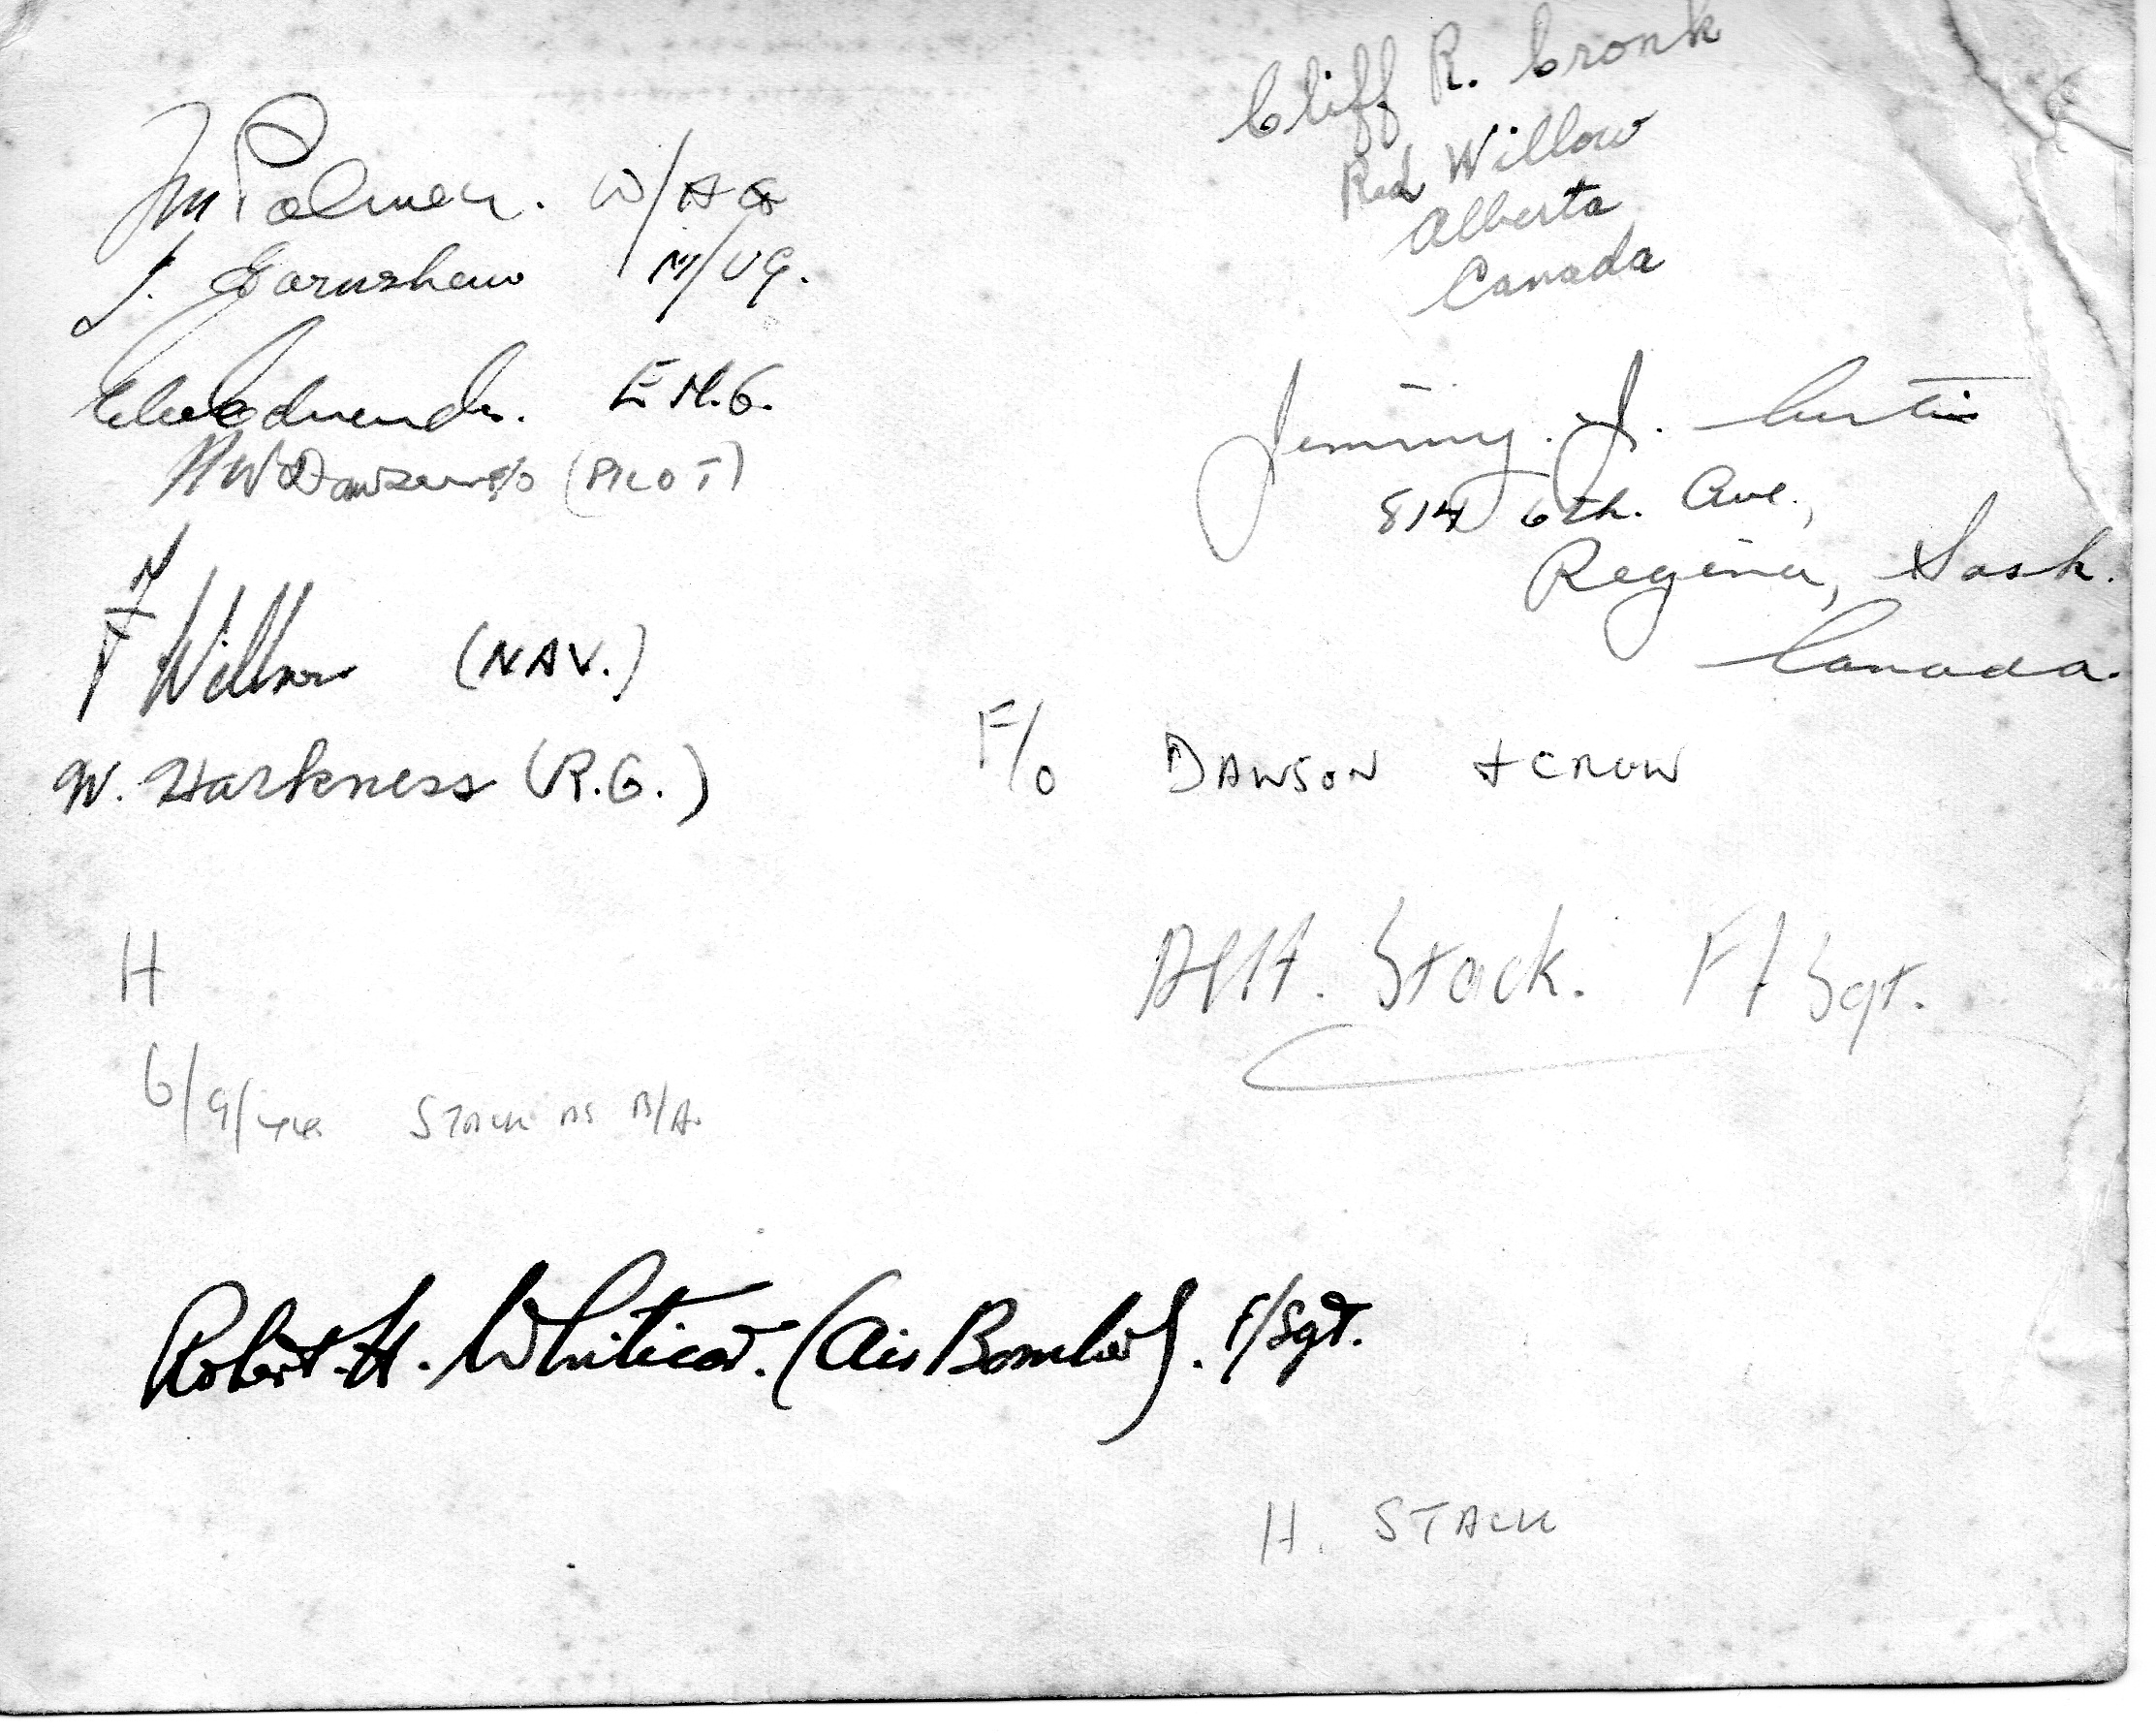 Palmer. W/AG
J. Earnshaw M/UG.
Edmunds. ENG.
NW Dawson F/O (PILOT)
(NAV.)
W. Harkness (R.G.)
H
6/9/44 STACK AS B/A.
Robert. H. Whiticar. (Air Bomber). F/Sgt.
Cliff R. Cronk
Red Willow
Alberta
Canada
Jimmy. J. Curtis
814 6th. Ave.,
Regina, Sask.
Canada.
F/O DAWSON + CREW
Stack. F/Sgt.
H. STACK